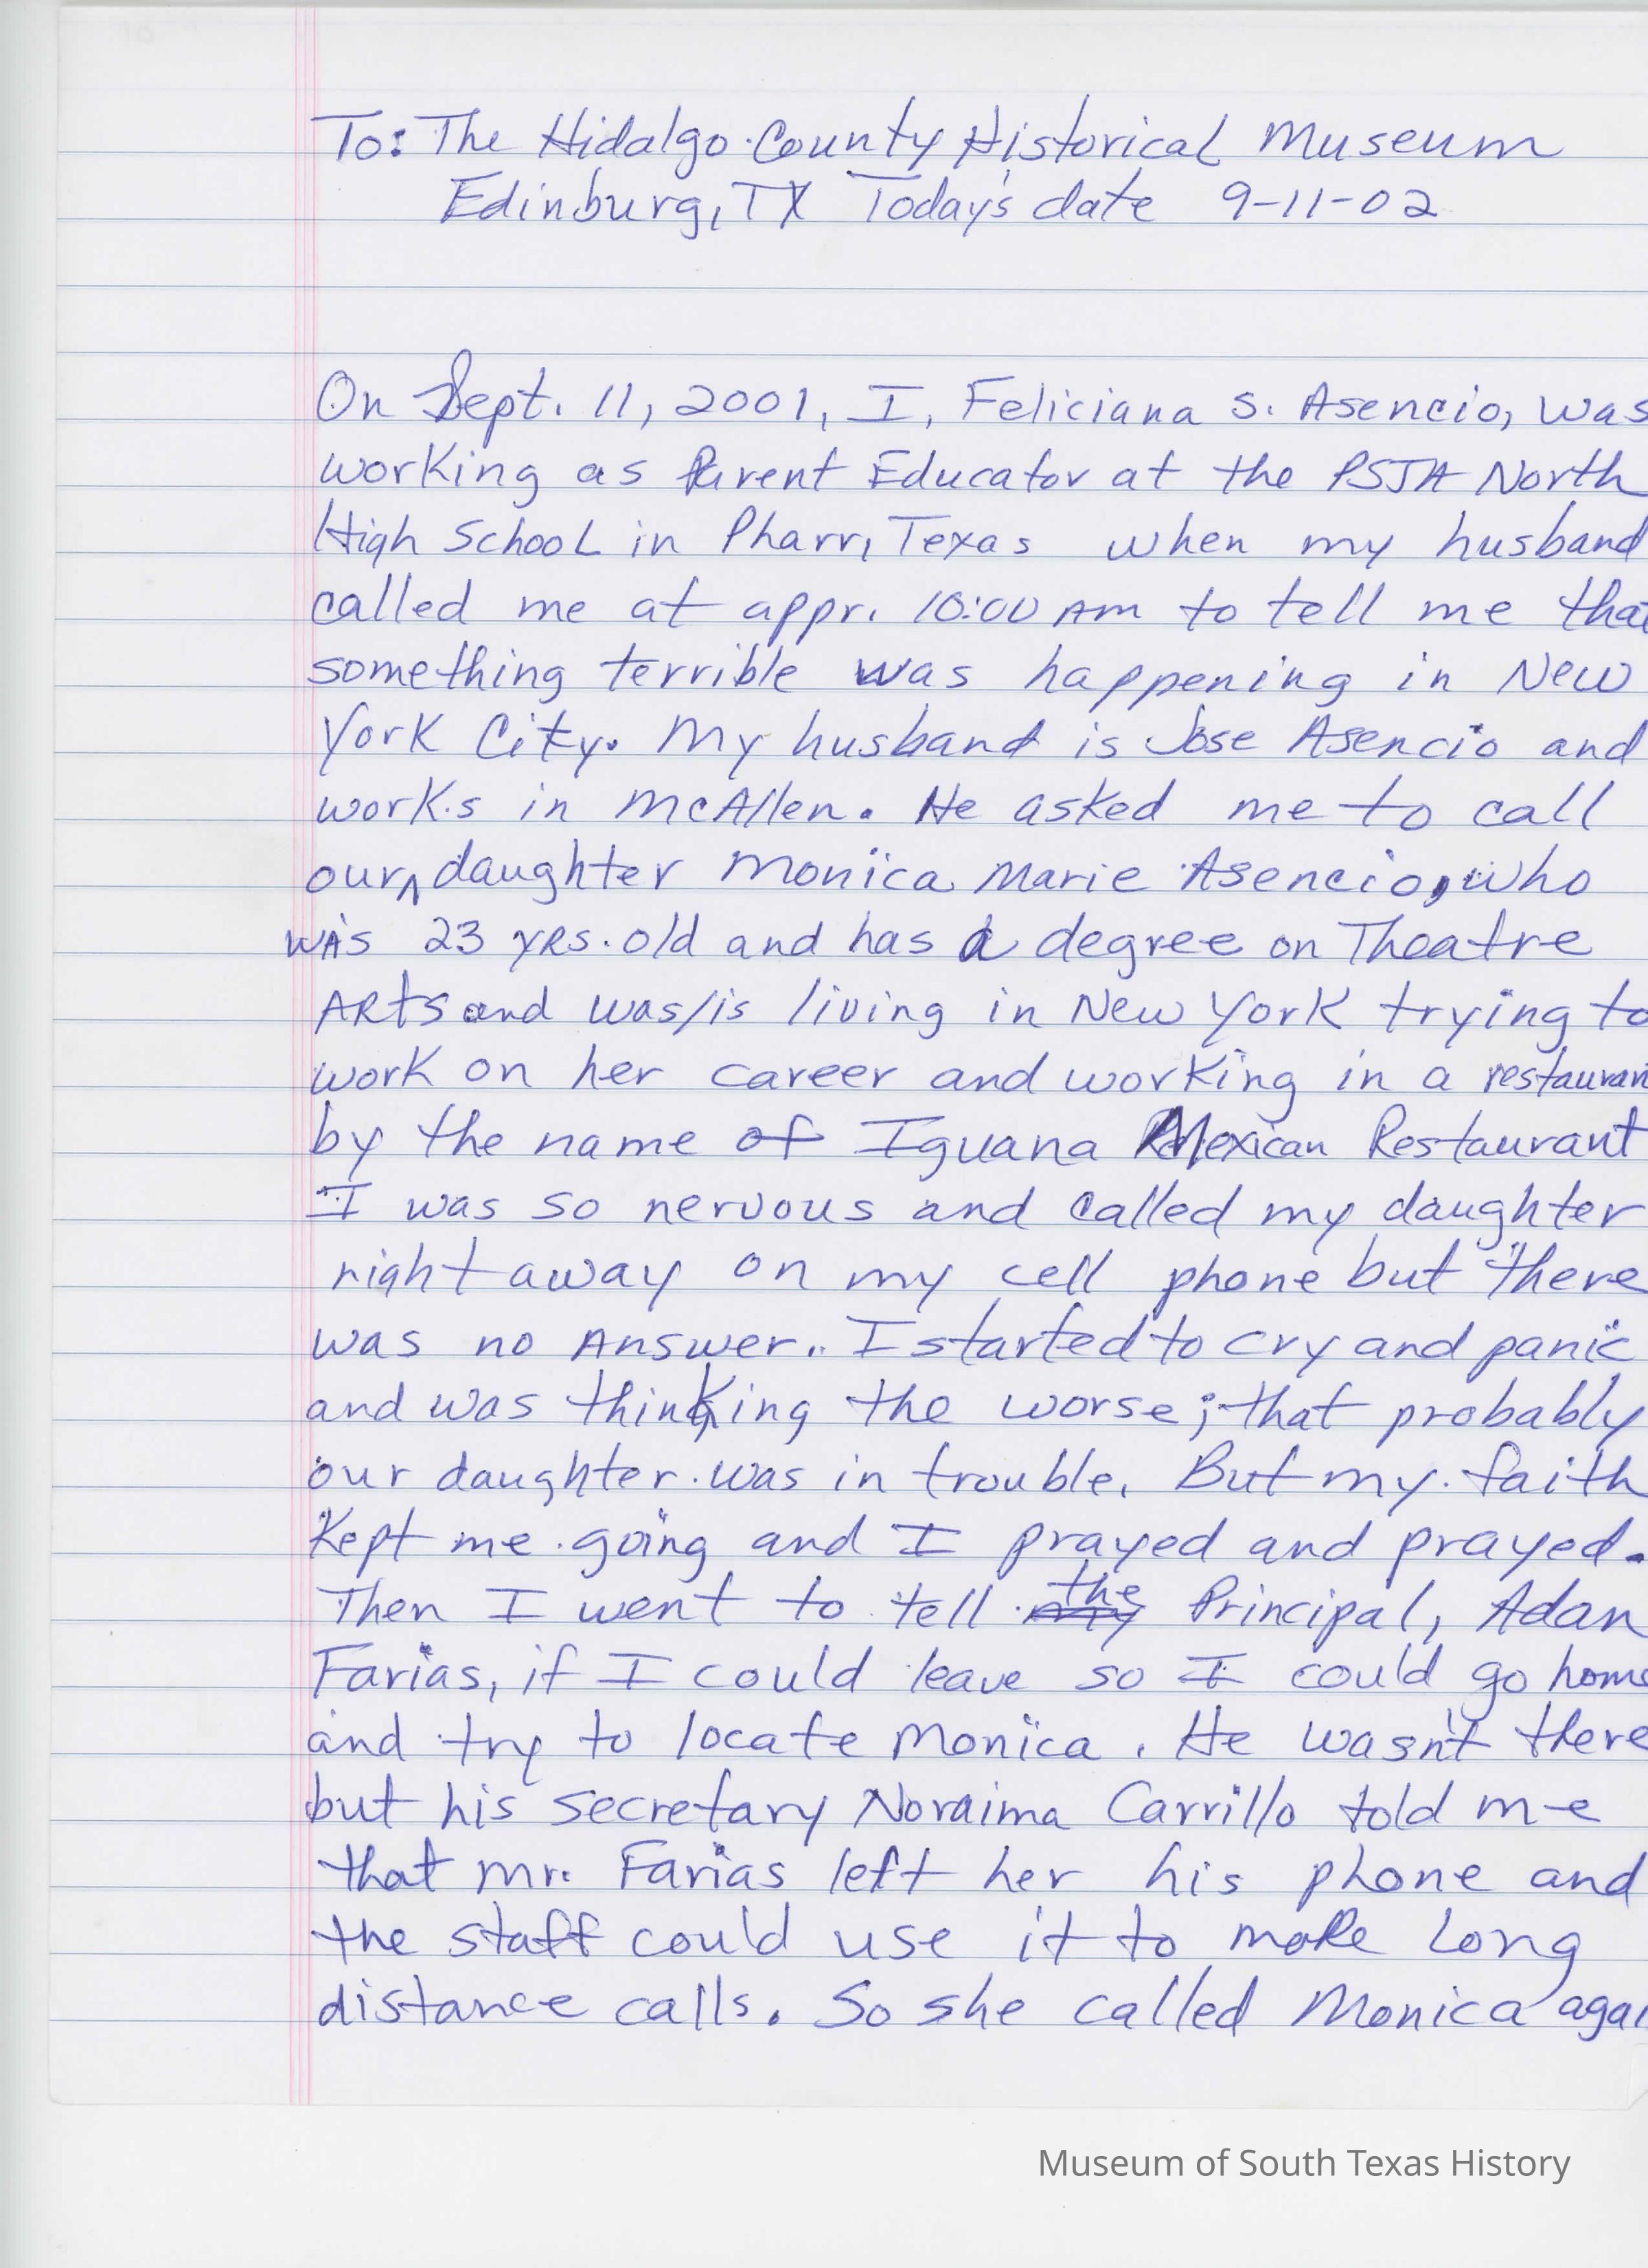 To: The Hidalgo County Historical Museum
Edinburg, TX Today's date 9-11-02
On Sept. 11, 2001, I, Feliciana S. Asencio, was
working as Parent Educator at the PSJA North
High School in Pharr, Texas when my husband
called me at appr. 10:00 AM to tell me that
something terrible was happening in New
York City. My husband is Jose Asencio and
works in McAllen. He asked me to call
our daughter Monica Marie Asencio, who
was 23 yrs. old and has a degree on Theatre
Arts and was/is living in New York trying to
work on her career and working in a restauran
by the name of Iguana Mexican Restaurant
I was so nervous and called my daughter
right away on my cell phone but there
was no answer. I started to cry and panic
and was thinking the worse; that probably
our daughter was in trouble. But my faith
kept me going and I prayed and prayed.
Then I went to tell the Principal, Adan
Farias, if I could leave so I could go home
and try to locate Monica. He wasn't there
but his secretary Noraima Carrillo told me
that Mr. Farias left her his phone and
the staff could use it to make long
distance calls. So she called Monica agai
Museum of South Texas History